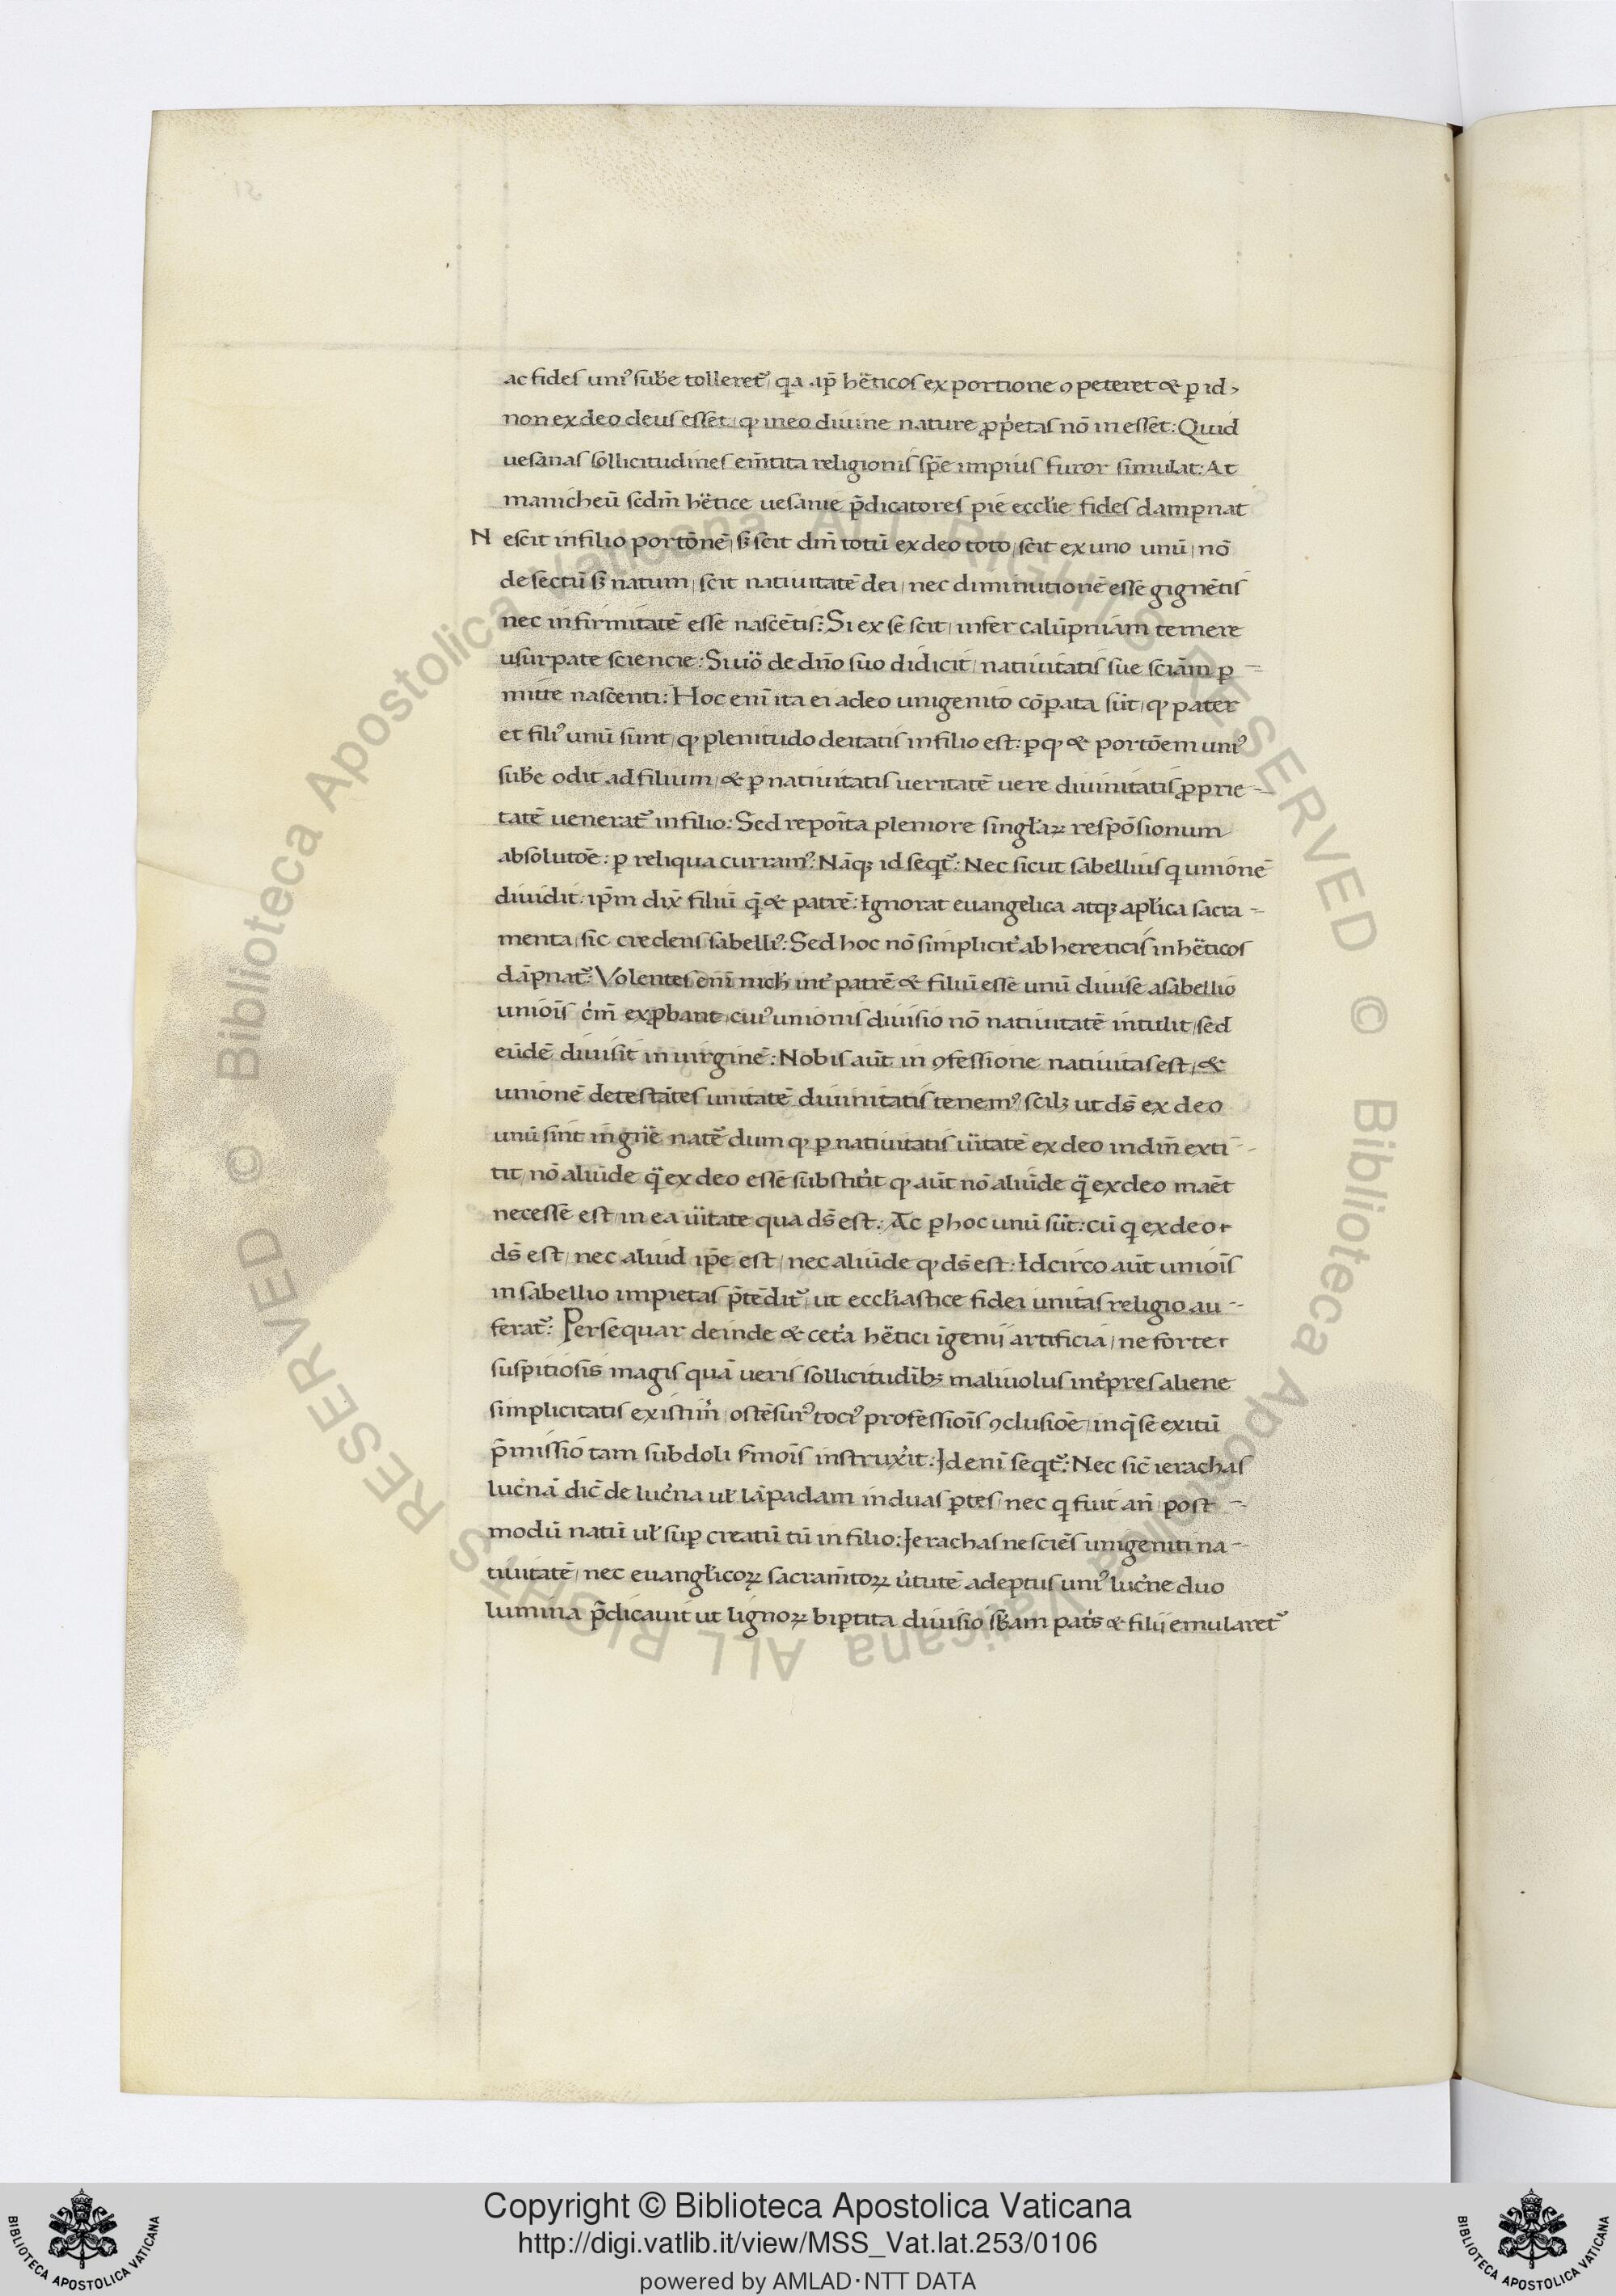 ac fides uni⁹ sub̄e tolleret᷑, q̄a ap̄ hēticos ex portione ꝯpeteret & ꝑ id,
non ex deo deus esset, qꝫ in eo diuine nature ꝓp̄etas nō inesset: Quid
uesanas sollicitudines em̄tita religionis sp̄e impius furor simulat: At
manicheū scdm̄ hētice uesanie p̄dicatores pie eccl̄ie fides dampnat
Nescit in filio portōnē, sꝫ scit dm̄ totū ex deo toto, scit ex uno unū, nō
desectū sꝫ natum, scit natiuitatē dei, nec diminutionē esse gignētis
nec infirmitatē esse nascētis: Si ex se scit, infer calūpniam temere
usurpate sciencie: Si uo̊ de dn̄o suo didicit, natiuitatis sue sciām ꝑ
mitte nascenti: Hoc enī ita ei a deo unigenito cōꝑata sūt, qꝫ pater
et fili⁹ unū sunt, qꝫ plenitudo deitatis in filio est: ꝑ qꝫ & portōem uni⁹
sub̄e odit ad filium, & ꝑ natiuitatis ueritatē uere diuinitatis ꝓprie
tatē uenerat᷑ in filio: Sed repoīta pleniore singl̄aꝝ respōsionum
absolutōe: ꝑ reliqua curram⁹: Nāqꝫ id seqt᷑: Nec sicut sabellius q̄ unionē
diuidit: ip̄m dix̄ filiū q̄ & patrē: Ignorat euangelica atqꝫ apl̄ica sacra
menta, sic credens sabelli⁹: Sed hoc nō simplicit̄ ab hereticis in hēticos
dāpnat᷑: Volentes enī nich̄ int̄ patrē & filiū esse unū diuise a sabellio
unioīs c̄m̄ exꝓbant, cui⁹ unionis diuisio nō natiuitatē intulit, sed
eūdē diuisit in uirginē: Nobis aūt in ꝯfessione natiuitas est, &
unionē detestātes unitatē diuinitatis tenem⁹, scilꝫ ut ds̄ ex deo
unū sint in gn̄e nat̄e dum qꝫ ꝑ natiuitatis ūitatē ex deo in dm̄ exti
tit, nō aliūde q̄ ex deo esse substit̄it qꝫ aūt nō aliūde q̄ ex deo maēt
necesse est, in ea ūitate qua ds̄ est: Ac ꝑ hoc unū sūt: cū q̄ ex deo
ds̄ est, nec aliud ip̄e est, nec aliūde qꝫ ds̄ est: Idcirco aūt unioīs
in sabellio impietas p̄tēdit᷑, ut eccl̄iastice fidei unitas religio au
ferat᷑: Persequar deinde & cet̄a hētici īgenii artificia, ne forte
suspitiosīs magis quā ueris sollicitudīb; maliuolus int̄pres aliene
simplicitatis existim̄, ostēsur⁹ toci⁹ professioīs ꝯclusiōe, in q̄ se exitū
p̄missio tam subdoli s̄moīs instrux̄it: Id enī seqt᷑: Nec sic̄ ierachas
luc̄nā dic̄ de luc̄na ul̄ lāpadam in duas ꝑtes, nec q̄ fuit an̄, post
modū natū ul̄ suꝑ creatū tū in filio: Ierachas nesciēs unigeniti na
tiuitatē, nec euangl̄icoꝝ sacram̄toꝝ ūtutē adeptus uni⁹ luc̄ne duo
lumina p̄dicauit ut lignoꝝ biꝑtita diuisio sb̄am pat̄s & filii emularet᷑
Copyright © Biblioteca Apostolica Vaticana
http://digi.vatlib.it/view/MSS_Vat.lat.253/0106
powered by AMLAD·NTT DATA